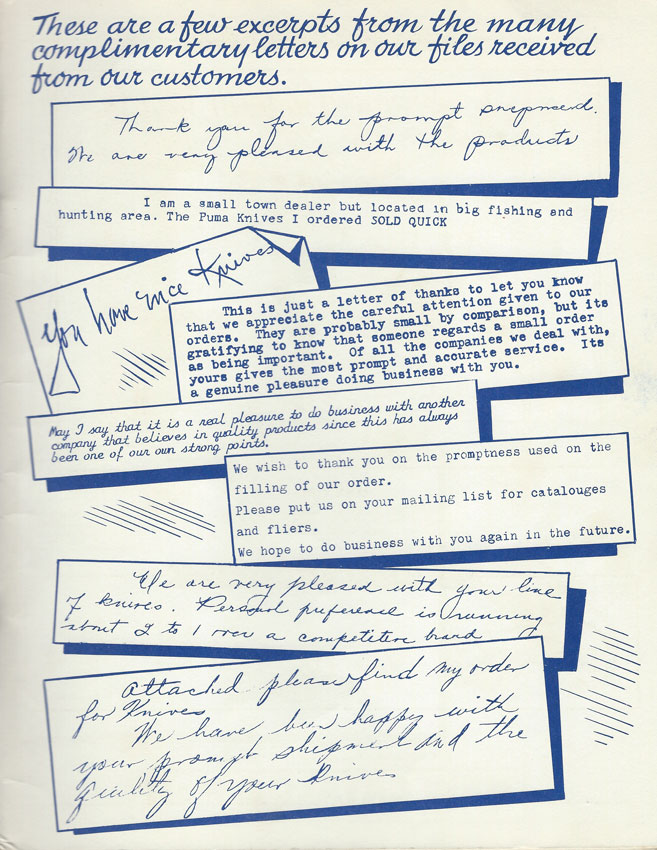 These are a few excerpts from the many
complimentary letters on our files received
from our customers.
Thank you for the prompt shipment.
We are very pleased with the products
I am a small town dealer but located in big fishing and
hunting area. The Puma Knives I ordered SOLD QUICK
You have nice Knives
This is just a letter of thanks to let you know
that we appreciate the careful attention given to our
orders. They are probably small by comparison, but its
gratifying to know that someone regards a small order
as being important. Of all the companies we deal with,
yours gives the most prompt and accurate service. Its
a genuine pleasure doing business with you.
May I say that it is a real pleasure to do business with another
company that believes in quality products since this has always
been one of our own strong points.
We wish to thank you on the promptness used on the
filling of our order.
Please put us on your mailing list for catalouges
and fliers.
We hope to do business with you again in the future.
We are very pleased with your line
of knives. Personal preference is running
about 2 to 1 over a competitive brand
Attached please find my order
for Knives
We have been happy with
your prompt shipment and the
quality of your Knives